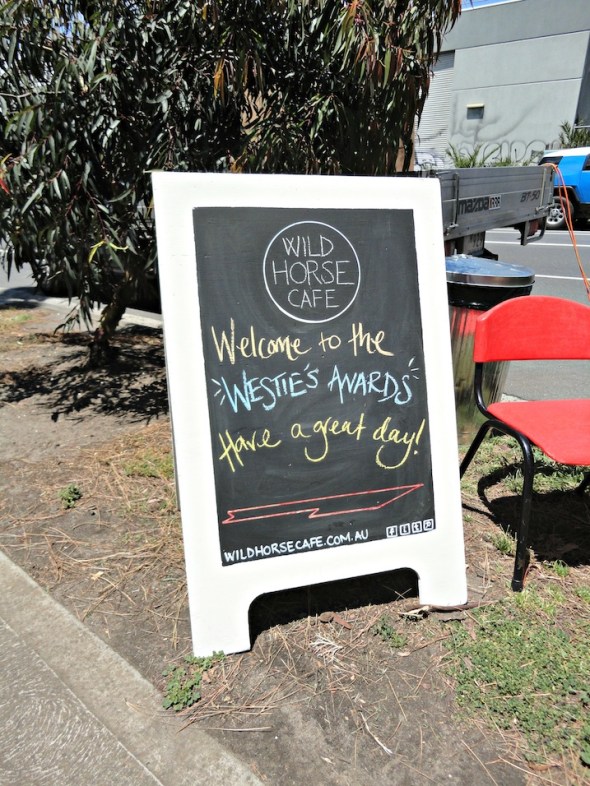 WILD
HORSE
CAFE
Welcome to the
WESTIE'S AWARDS
Have a great day!
WILDHORSECAFE.COM.AU
mazda